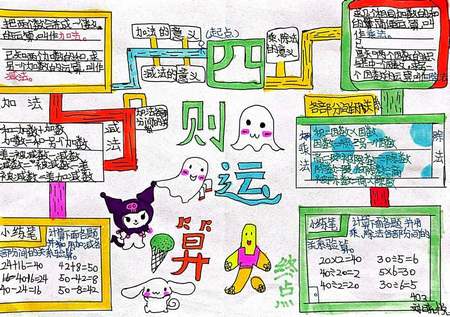 把两个数合并成一个数
的运算,叫作加法。
已知两个加数的和与其中一个加数,求
另一个加数的运算,叫作
减法。
加法的意义
(起点)
减法的意义
乘、除法
的意义
求几个相同加数的和的
简便运算,叫
作乘法。
四则运算
终点
加法
减法
加法各部分间的关系
和=加数+加数
加数=和-另一个加数
差=被减数-减数
减数=被减数-差
被减数=差+减数
各部分间的关系
乘法
除法
积=因数×因数
因数=积÷另一个因数
商=被除数÷除数
除数=被除数÷商
被除数=商×除数
小练笔
计算下面各题,并
用加、减法各部分间的
关系验算。
24+16=40
42+8=50
16=40-24
50-42=8
40-24=16
50-8=42
小练笔
计算下面各题,并用
乘、除法各部分间的
关系验算。
20×2=40
30÷5=6
40÷20=2
5×6=30
40÷2=20
30÷6=5
402